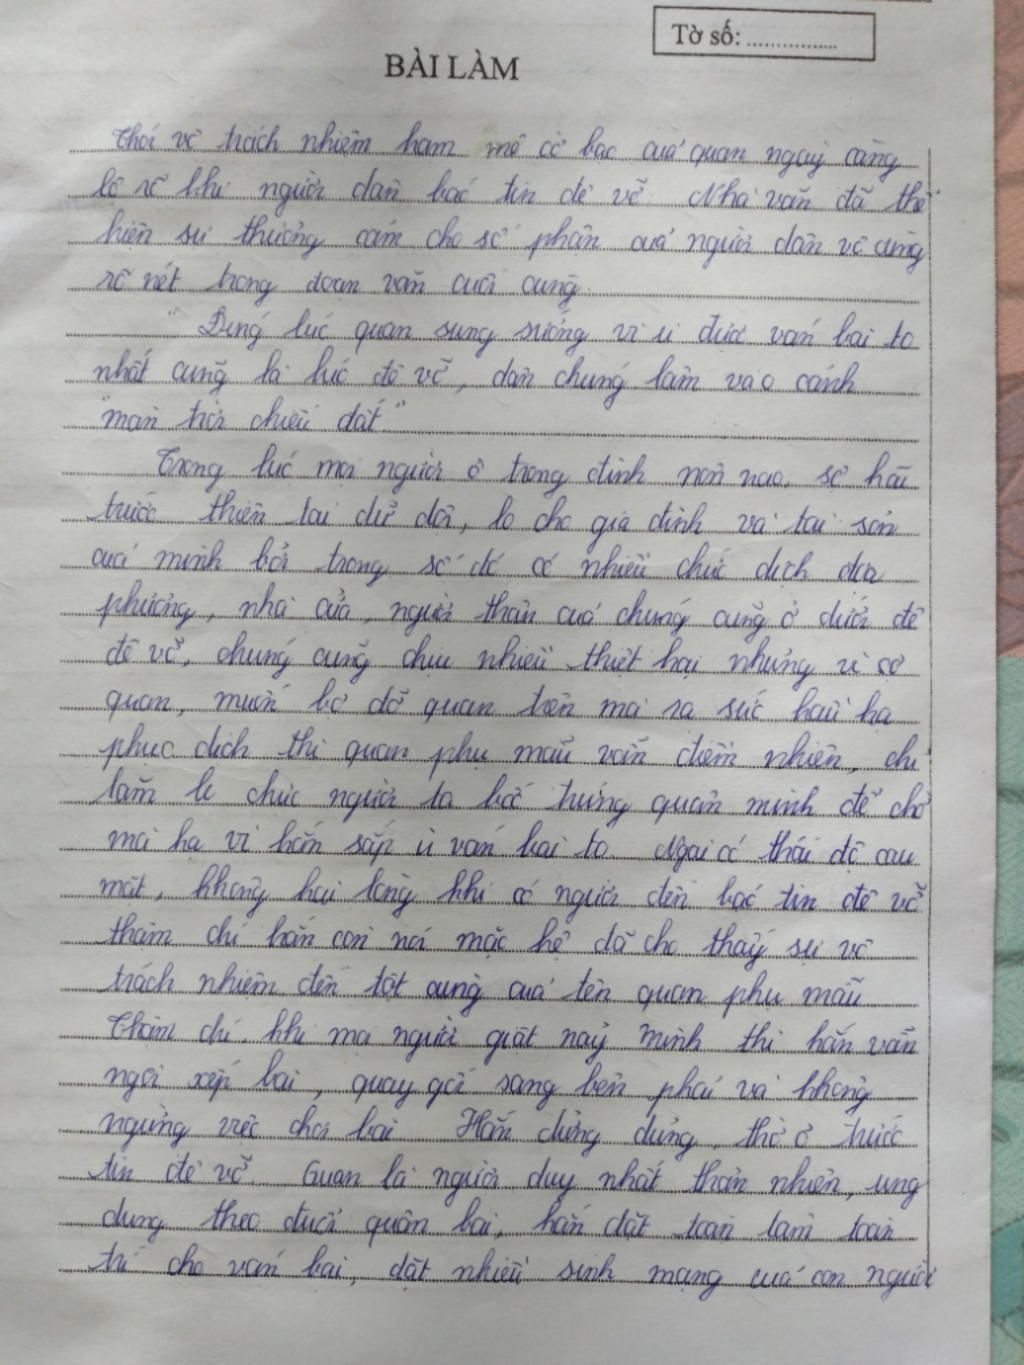 Tờ số: ................
BÀI LÀM
Thói vô trách nhiệm ham mê cờ bạc của quan ngày càng
lộ rõ khi người dân báo tin đê vỡ. Nhà văn đã thể
hiện sự thương cảm cho số phận của người dân vô cùng
rõ nét trong đoạn văn cuối cùng.
" Đúng lúc quan sung sướng vì ù được ván bài to
nhất cũng là lúc đê vỡ, dân chúng lâm vào cảnh
"màn trời chiếu đất"
Trong lúc mọi người ở trong đình nôn nao, sợ hãi
trước thiên tai dữ dội, lo cho gia đình và tài sản
của mình bởi trong số đó có nhiều chức dịch địa
phương, nhà cửa, người thân của chúng cũng ở dưới đê
đê vỡ, chúng cũng chịu nhiều thiệt hại nhưng vì sợ
quan, muốn bợ đỡ quan trên mà ra sức hầu hạ
phục dịch thì quan phụ mẫu vẫn điềm nhiên, chỉ
lăm le chực người ta bốc trúng quân mình để chờ
mà hạ vì hắn sắp ù ván bài to. Ngài có thái độ cau
mặt, không hài lòng khi có người đến báo tin đê vỡ
thậm chí hắn còn nói mặc kệ đã cho thấy sự vô
trách nhiệm đến tột cùng của tên quan phụ mẫu
Thậm chí, khi mà người giật nảy mình thì hắn vẫn
ngồi xếp bài, quay gối sang bên phải và không
ngừng việc chơi bài. Hắn dửng dưng, thờ ơ trước
tin đê vỡ. Quan là người duy nhất thản nhiên, ung
dung theo đuổi quân bài, hắn đặt toàn tâm toàn
trí cho ván bài, đặt nhiều sinh mạng của con người